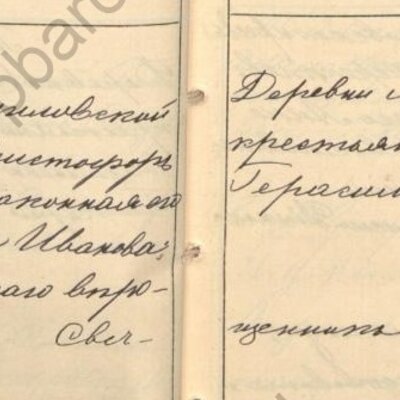 иловской
истофоръ
аконная его
Иванова;
наго вѣро-
Свя-
Деревни
крестьян
Герасим
щенникъ